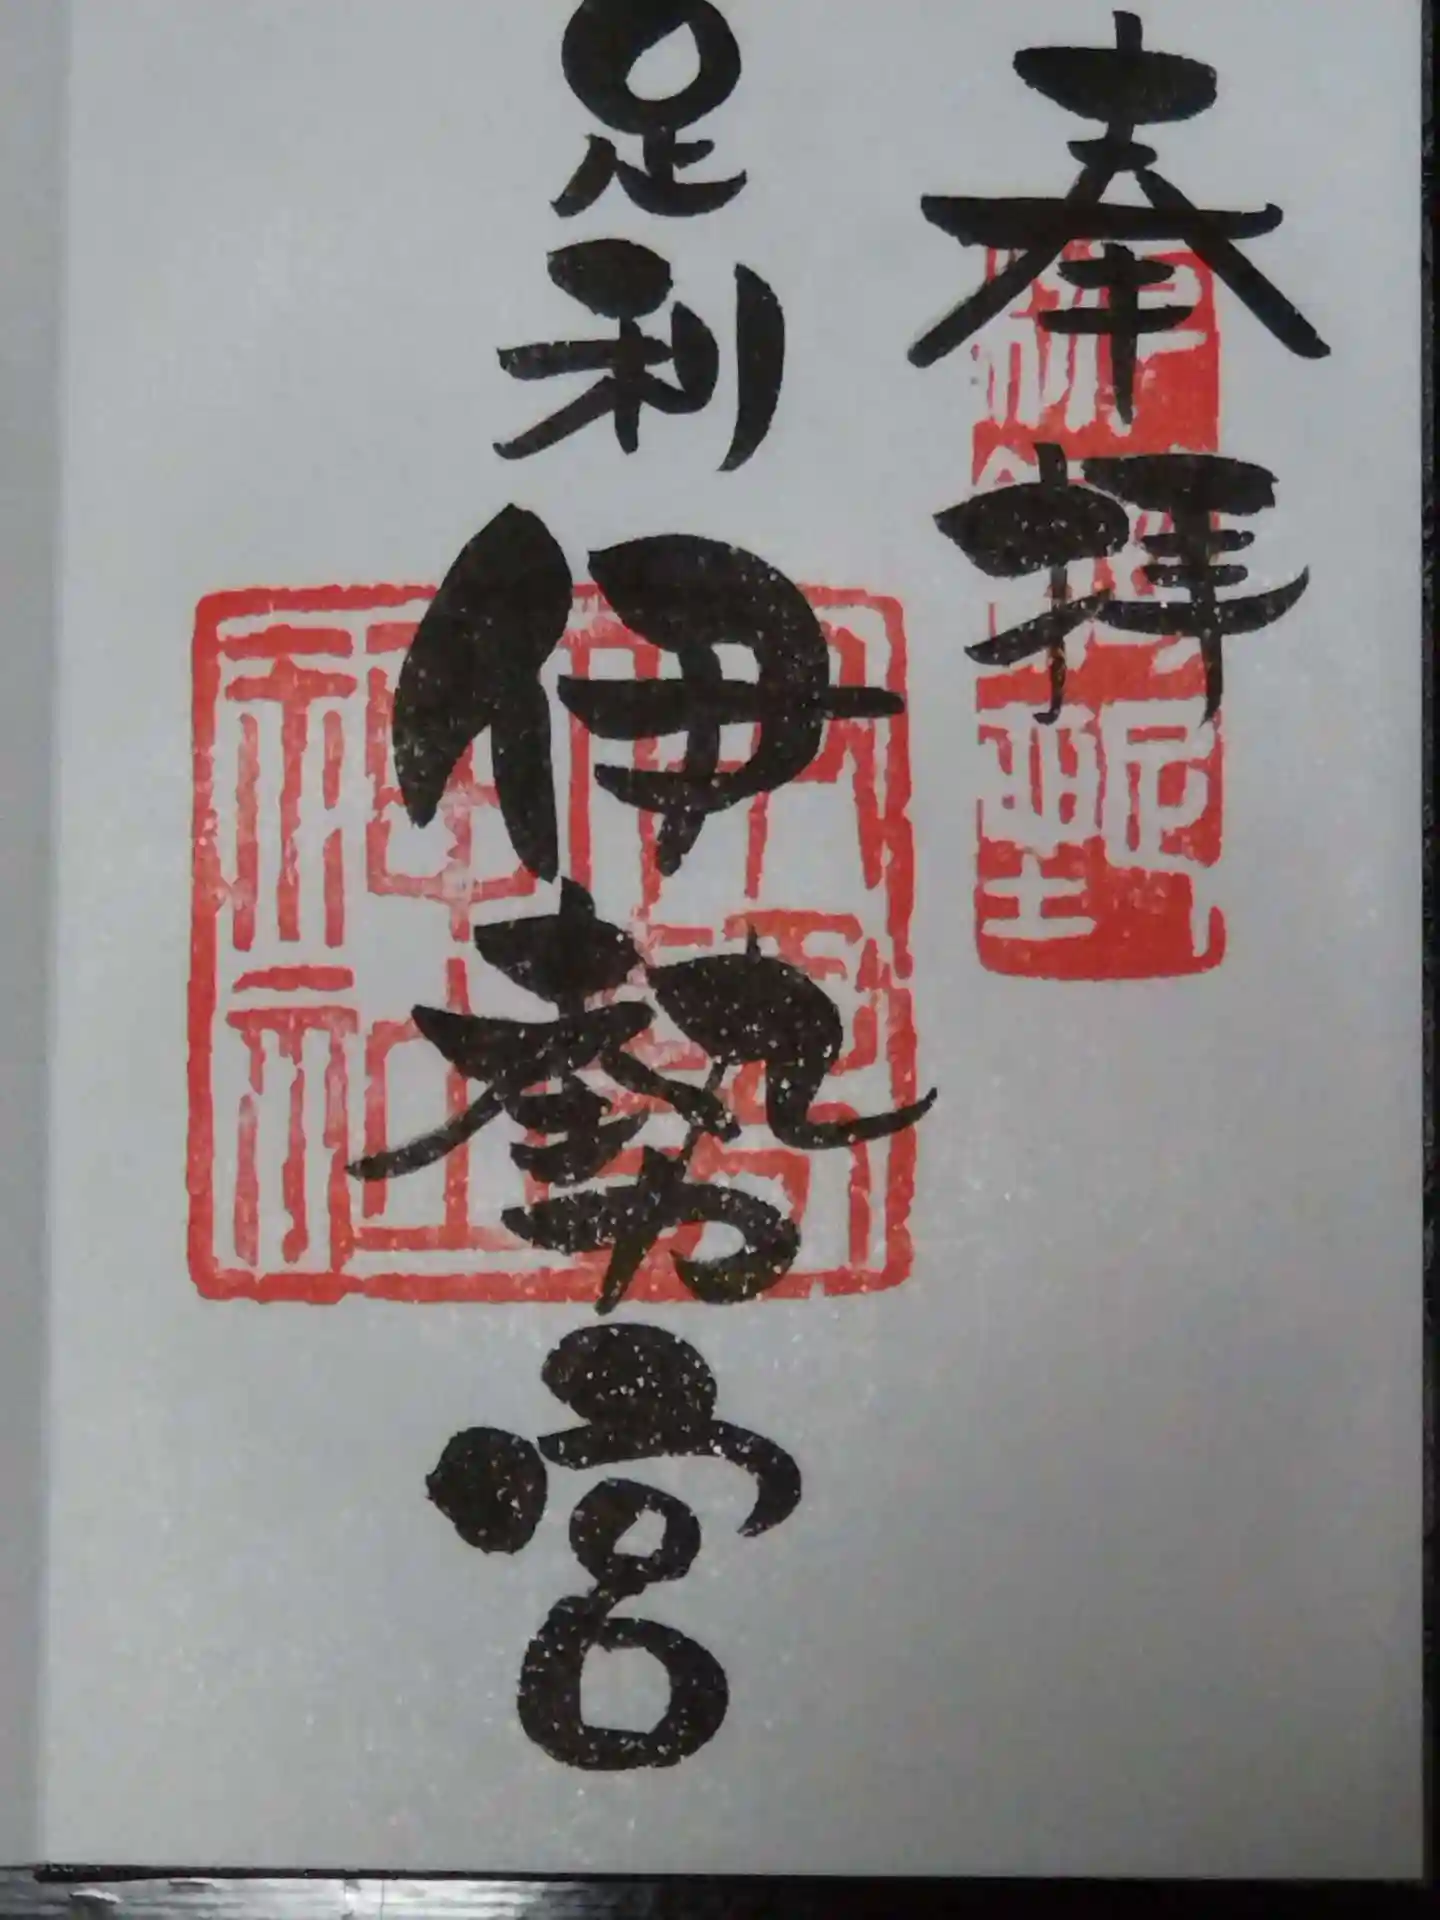 奉拝
足利
伊勢宮
伊勢神社